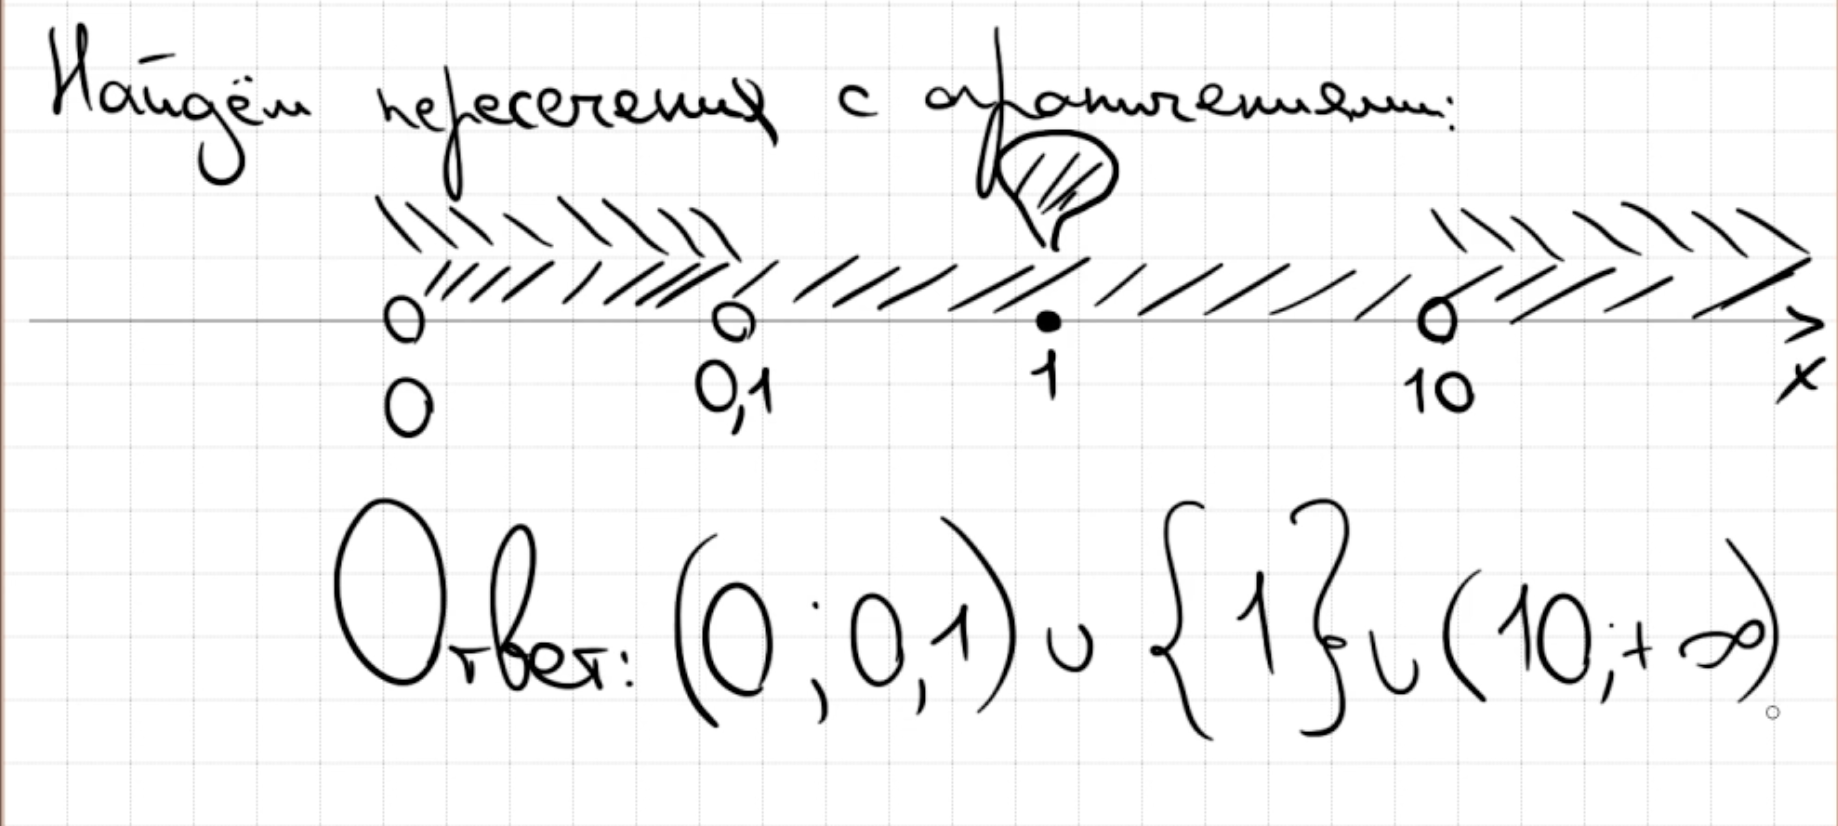 Найдём пересечения с ограничениями:
0 0,1 1 10 x
Ответ: (0; 0,1) ∪ {1} ∪ (10; +∞)